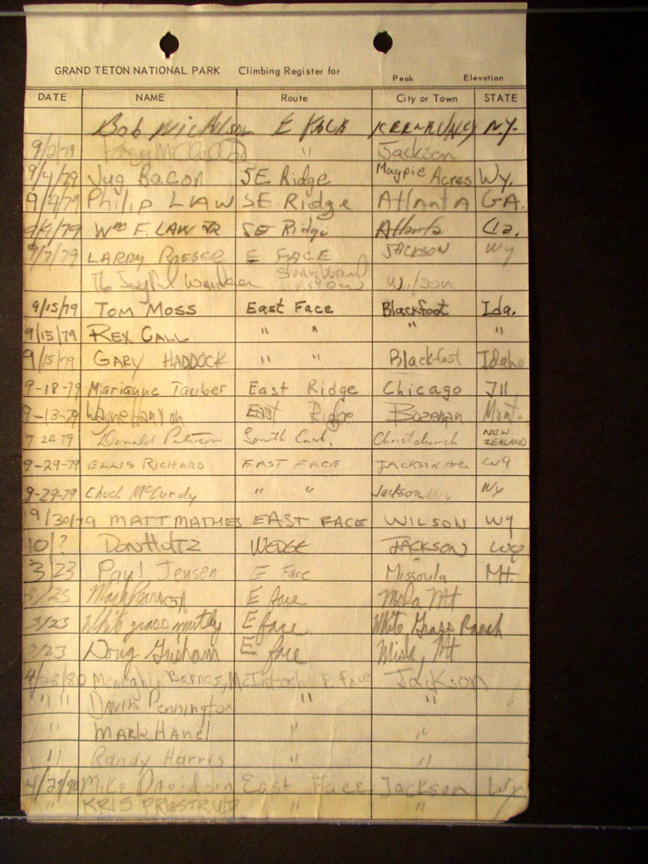 GRAND TETON NATIONAL PARK Climbing Register for Peak Elevation
DATE NAME Route City or Town STATE
Bob E FACE NY.
9/2/79 " Jackson
9/4/79 Jug Bacon SE Ridge Magpie Acres Wy.
9/4/79 Philip LAW SE. Ridge Atlanta GA.
9/4/79 Wm F. LAW JR SE Ridge Atlanta Ga.
9/7/79 LARRY E FACE JACKSON WY
The Joyful
9/15/79 TOM MOSS East Face Blackfoot Ida.
9/15/79 REX CALL " " " "
9/15/79 GARY HADDOCK " " Blackfoot Idaho
9-18-79 Marianne Tauber East Ridge Chicago Ill
9-13-79 Wayne East Ridge Bozeman Mont.
7 24 79 Donald South Christchurch NEW ZEALAND
9-29-79 ELLIS RICHARD EAST FACE JACKSON
9-29-79 Chuck McCurdy " " Jackson Wy
9/30/79 MATT MATHES EAST FACE WILSON WY
10/? DON HULTZ WEDGE JACKSON WY
3/23 Paul Jensen E Face Missoula Mt.
3/23 Mark E face Msla Mt
3/23 White grass E face White Grass Ranch
3/23 Doug E face Misla, Mt
4/ /80 Barnes, McIntosh E Face Jackson
" " Davis Pennington " "
" MARK Hanel " "
" Randy Harris " "
4/27/80 Mike Davidson East Face Jackson Wy
" KRIS PRESTRUD " "